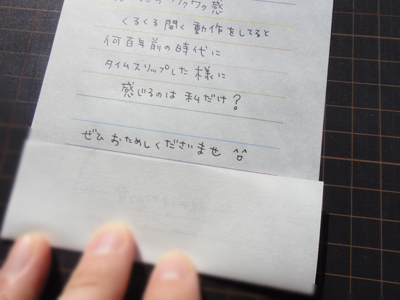 ワクワク感
くるくる開く動作をしてると
何百年前の時代に
タイムスリップした様に
感じるのは私だけ?
ぜひおためしくださいませ ^^